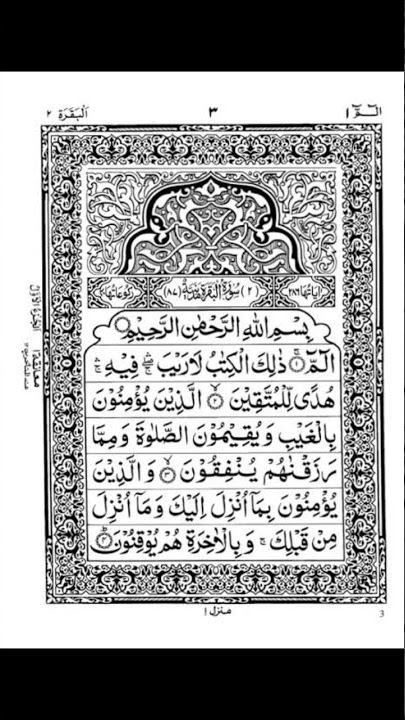 الٓمّٓ ١
٣
اَلْبَقَرَة ٢
اٰیَاتُهَا ٢٨٦
(٢) سُوْرَةُ الْبَقَرَةِ مَدَنِيَّةٌ (٨٧)
رُكُوْعَاتُهَا
بِسْمِ اللهِ الرَّحْمٰنِ الرَّحِيْمِ
الٓمّٓ ۚ ١ ذٰلِكَ الْكِتٰبُ لَا رَيْبَ ۛ فِيْهِ ۛ
هُدًى لِّلْمُتَّقِيْنَ ۙ ٢ الَّذِيْنَ يُؤْمِنُوْنَ
بِالْغَيْبِ وَيُقِيْمُوْنَ الصَّلٰوةَ وَمِمَّا
رَزَقْنٰهُمْ يُنْفِقُوْنَ ۙ ٣ وَالَّذِيْنَ
يُؤْمِنُوْنَ بِمَاۤ اُنْزِلَ اِلَيْكَ وَمَاۤ اُنْزِلَ
مِنْ قَبْلِكَ ۚ وَبِالْاٰخِرَةِ هُمْ يُوْقِنُوْنَ ؕ ٤
منزل ١
3